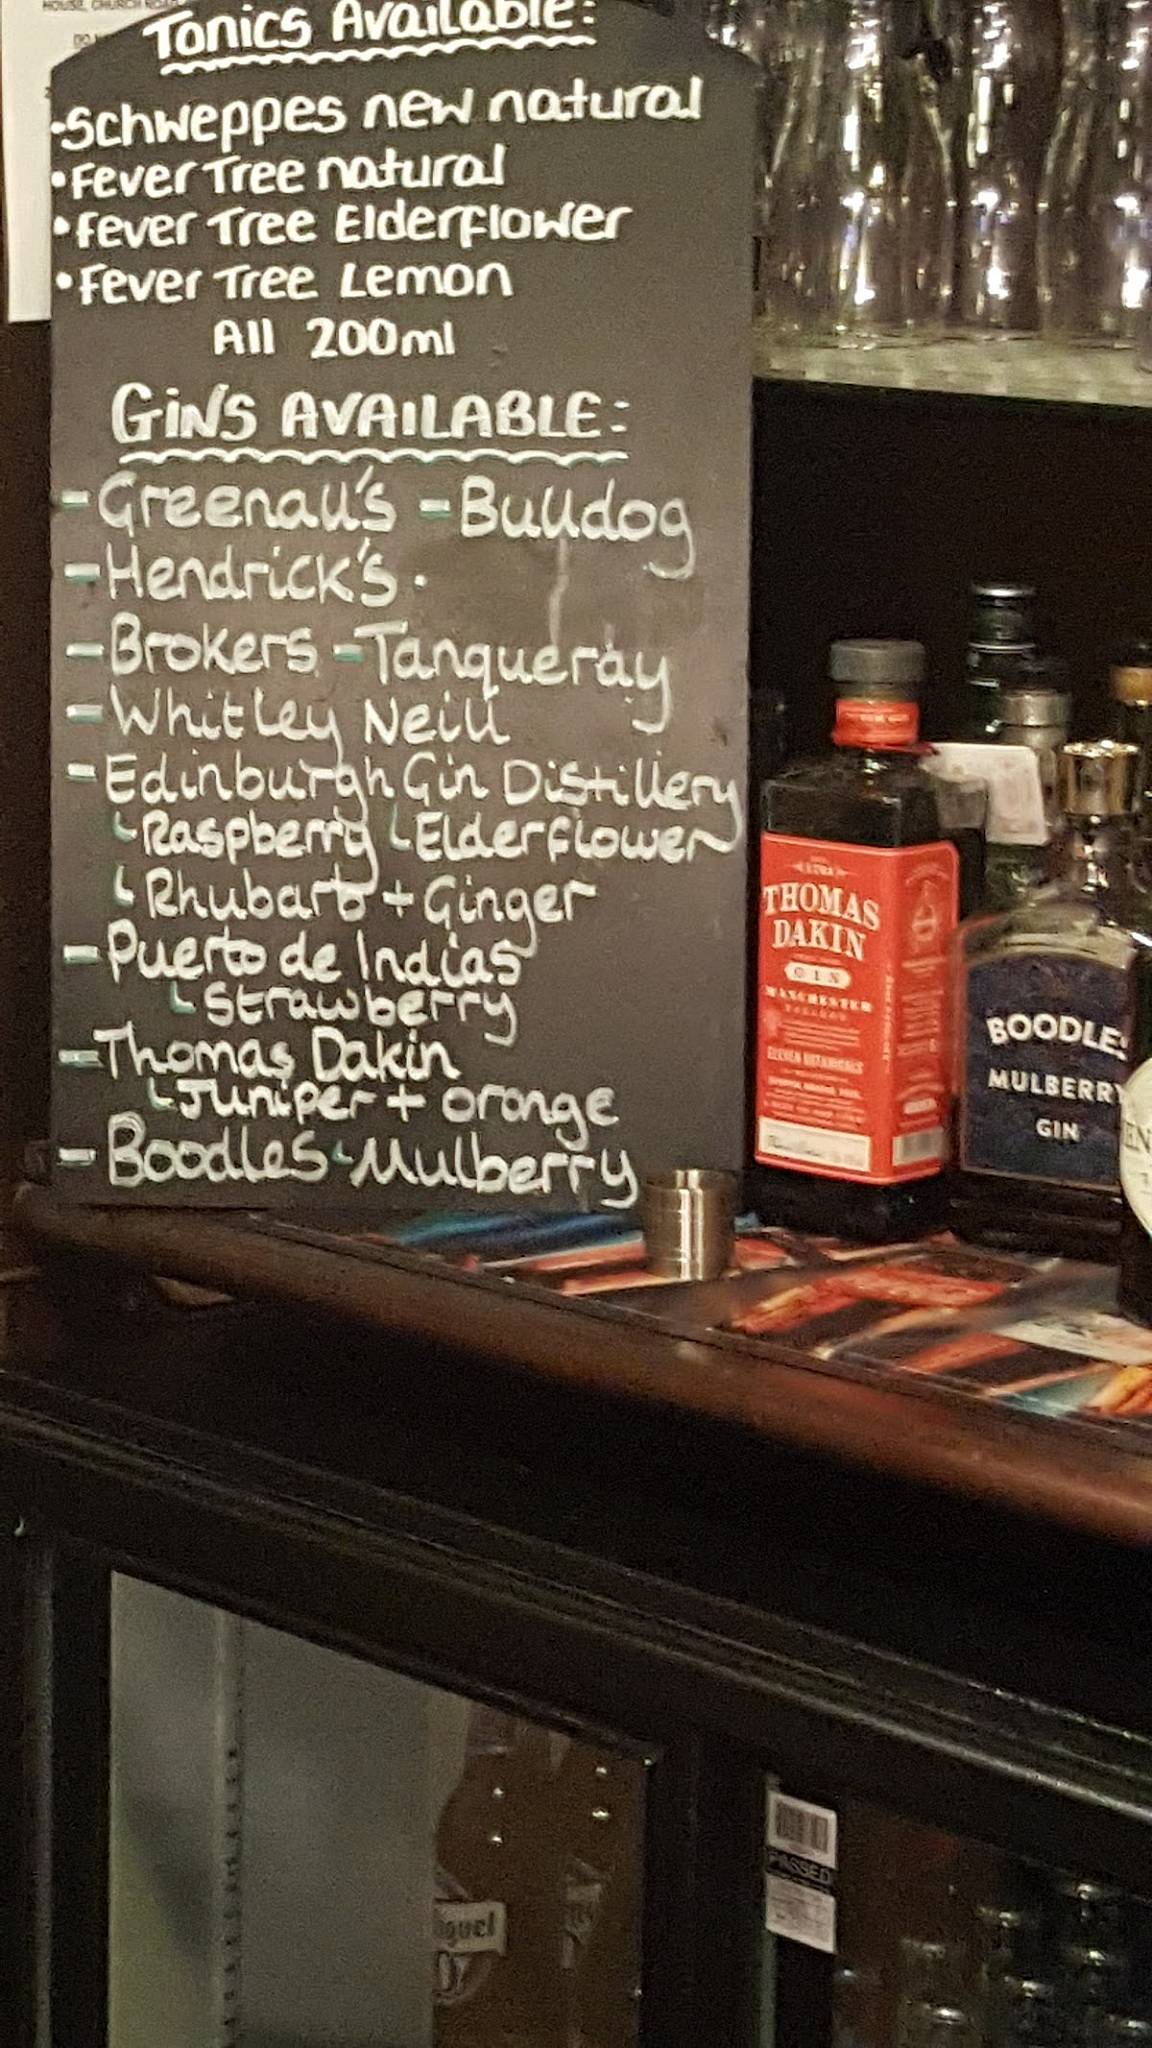 HOUSE, CHURCH ROAD
Tonics Available:
-Schweppes new natural
•Fever Tree natural
•Fever Tree Elderflower
•Fever Tree Lemon
All 200ml
GiNS AVAILABLE:
-Greenall's -Bulldog
-Hendrick's.
-Brokers -Tanqueray
-Whitley Neill
-Edinburgh Gin Distillery
Raspberry Elderflower
Rhubarb + Ginger
-Puerto de Indias
Strawberry
-Thomas Dakin
Juniper + orange
-Boodles Mulberry
THOMAS
DAKIN
GIN
MANCHESTER
ELEVEN BOTANICALS
BOODLES
MULBERRY
GIN
PASSED
iguel